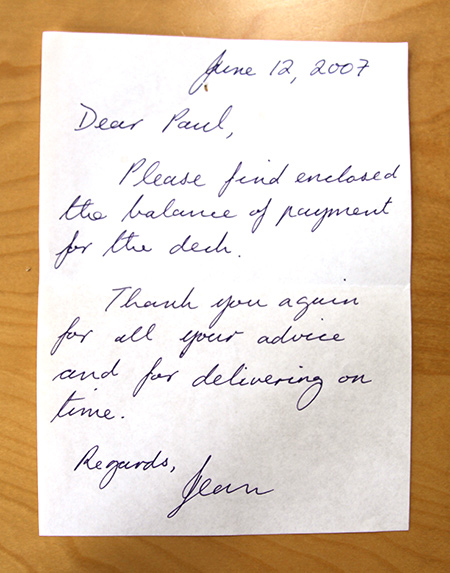 June 12, 2007
Dear Paul,
Please find enclosed
the balance of payment
for the deck.
Thank you again
for all your advice
and for delivering on
time.
Regards,
Jean